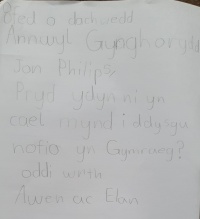 Annwyl Gynghorydd
Jon Philips,
Pryd ydyn ni yn
cael mynd i ddysgu
nofio yn Gymraeg?
oddi wrth
Awen ac Elan